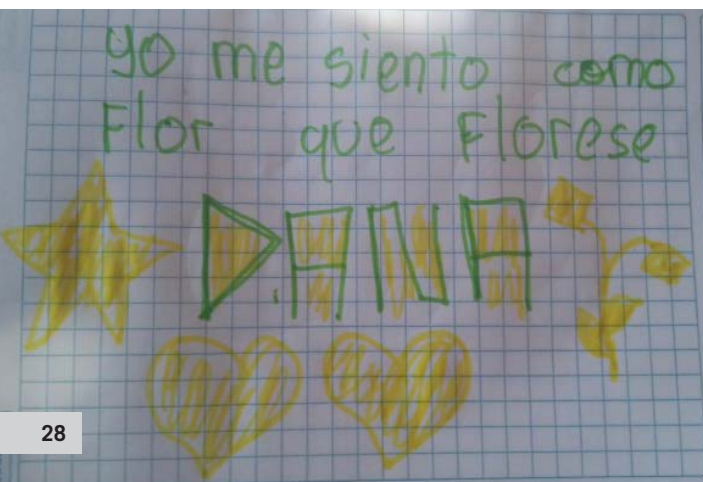 yo me siento como
Flor que Florese
D.ANA
28